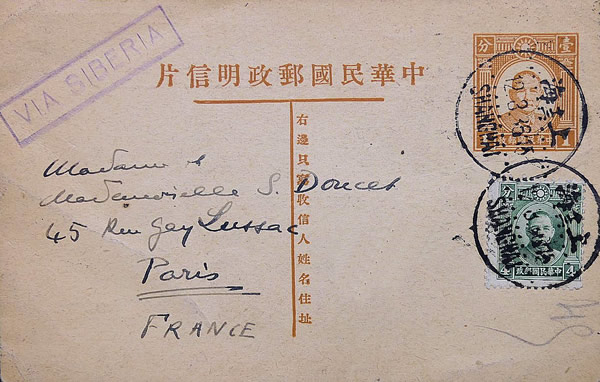 VIA SIBERIA
片信明政郵國民華中
分 壹
1
上海
SHANGHAI
右邊只寫收信人姓名住址
Madame et
Mademoiselle S. Doucet
45 Rue Gay Lussac
Paris
FRANCE
上海
SHANGHAI
4 政郵國民華中 4